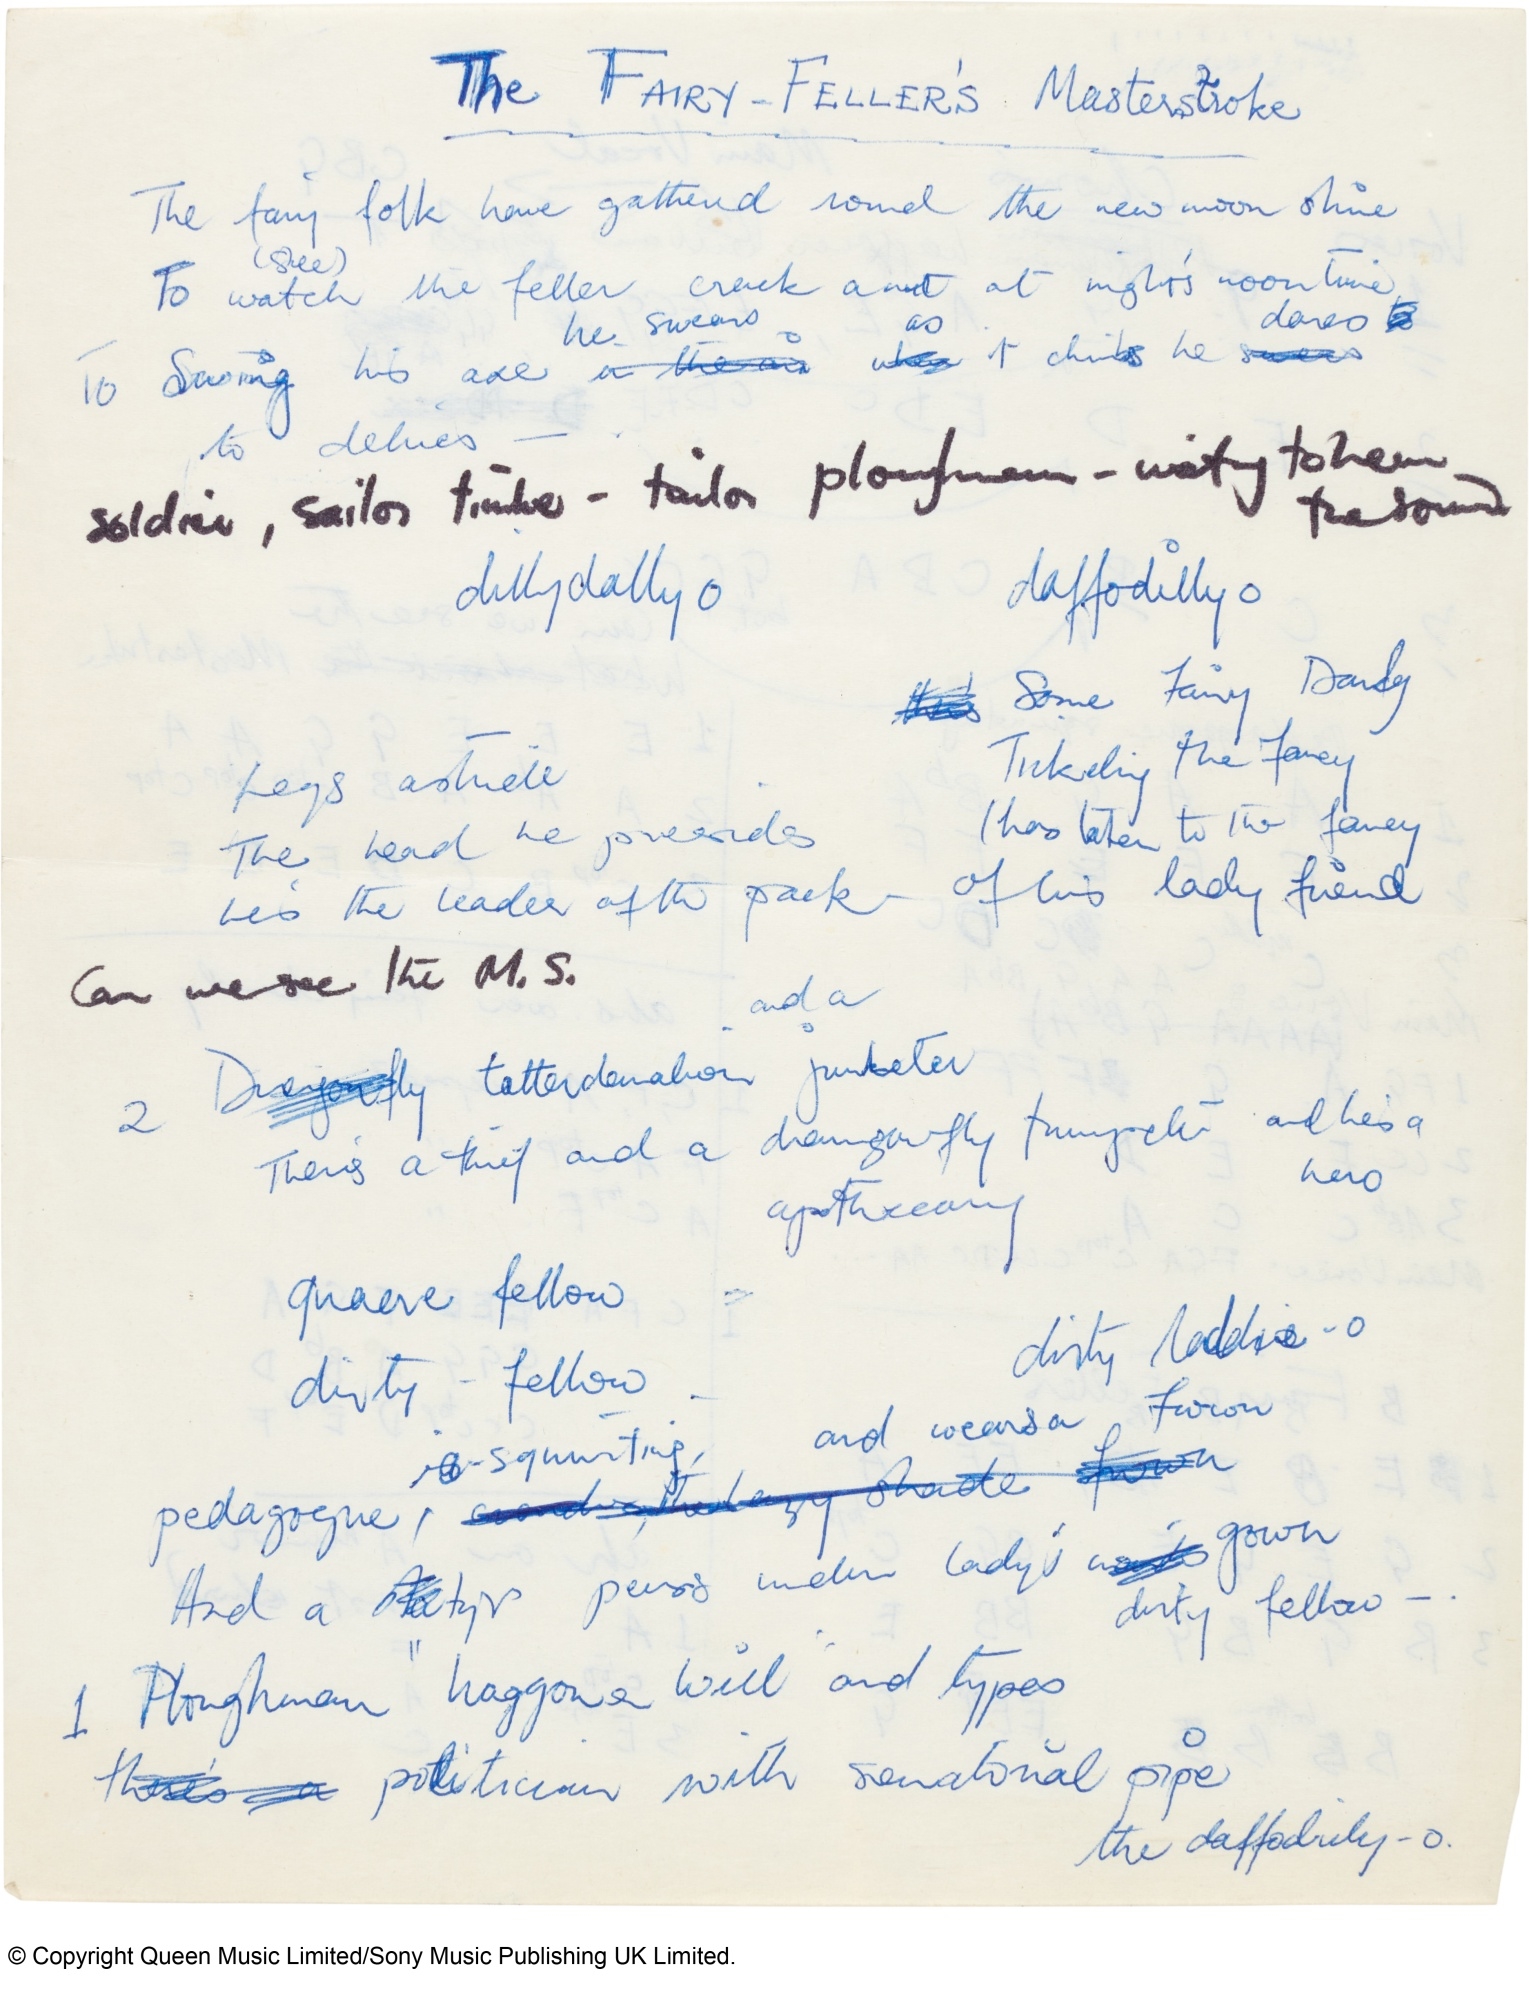 The FAIRY-FELLER'S Masterstroke
The fairy folk have gathered round the new moon shine
(see)
To watch the feller crack a nut at night's noon time
he swears as dares
To Swing his axe it climbs he
to delives —
soldier, sailor tinker - tailor ploughman - waiting to hear
the sound
dilly dally o daffodilly o
Some Fairy Dandy
Tickeling the Fancy
Legs astride
(has taken to the fancy
The head he presides
he's the leader of the pack - of his lady friend
Can we see the M.S.
and a
2 Dragonfly tatterdemalion junketer
There's a thief and a draongonfly trumpeter and he's a
hero
apothecary
quaere fellow =
dirty laddie - o
dirty - fellow -
is - squinting, and wears a frown
pedagogue, and the lazy shade frown
And a satyr peers under lady's gown
dirty fellow — .
1 Ploughman "Waggoner Will" and types
there's a politician with senatorial pipe
the daffodily - o.
© Copyright Queen Music Limited/Sony Music Publishing UK Limited.